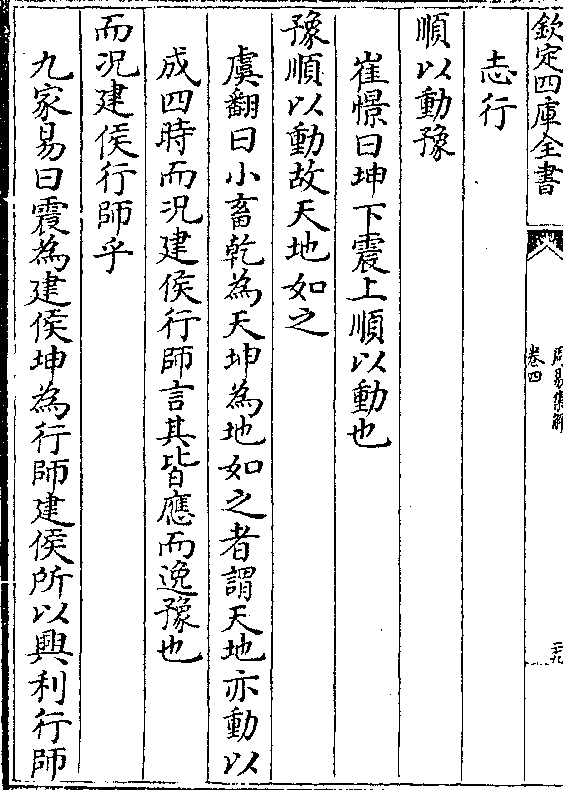 欽定四庫全書
周易集解
卷四
志行
順以動豫
崔憬曰坤下震上順以動也
豫順以動故天地如之
虞翻曰小畜乾為天坤為地如之者謂天地亦動以
成四時而况建侯行師言其皆應而逸豫也
而况建侯行師乎
九家易曰震為建侯坤為行師建侯所以興利行師